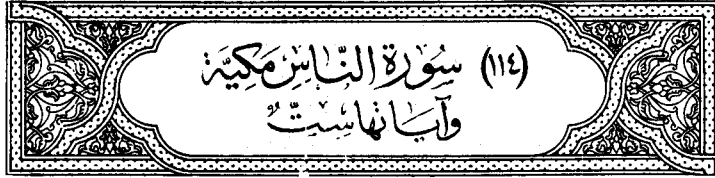 (١١٤) سُورَةِ النَّاسِ مَكِيَّة
وَآيَاتُهَا سِتٌّ